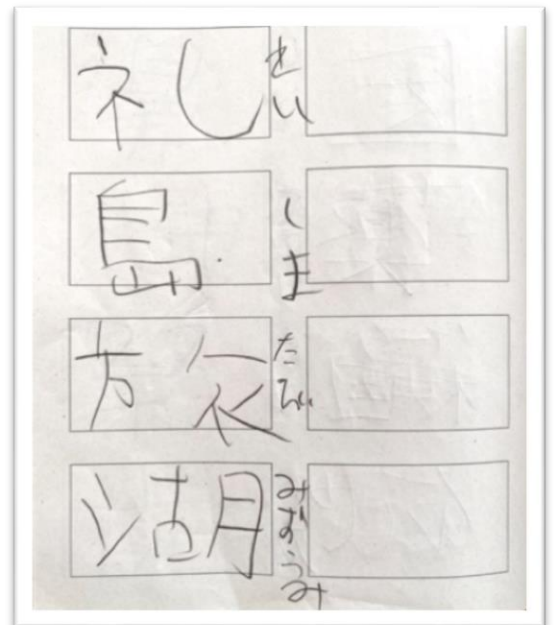 礼 れい
島 しま
旅 たび
湖 みずうみ